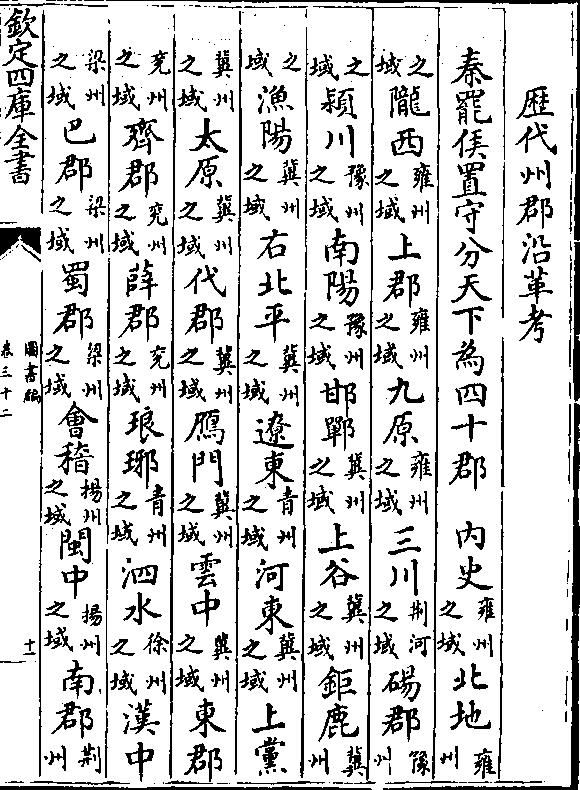 歴代州郡沿革考
秦罷侯置守分天下為四十郡 内史雍州之域北地雍州
之域隴西雍州之域上郡雍州之域九原雍州之域三川荆河之域碭郡豫州
之域潁川豫州之域南陽豫州之域邯鄲冀州之域上谷冀州之域鉅鹿冀州
之域漁陽冀州之域右北平冀州之域遼東青州之域河東冀州之域上黨
冀州之域太原冀州之域代郡冀州之域鴈門冀州之域雲中冀州之域東郡
兖州之域齊郡兖州之域薛郡兖州之域琅琊青州之域泗水徐州之域漢中
梁州之域巴郡梁州之域蜀郡梁州之域會稽揚州之域閩中揚州之域南郡荆州
欽定四庫全書
圖書編
卷三十二
十一